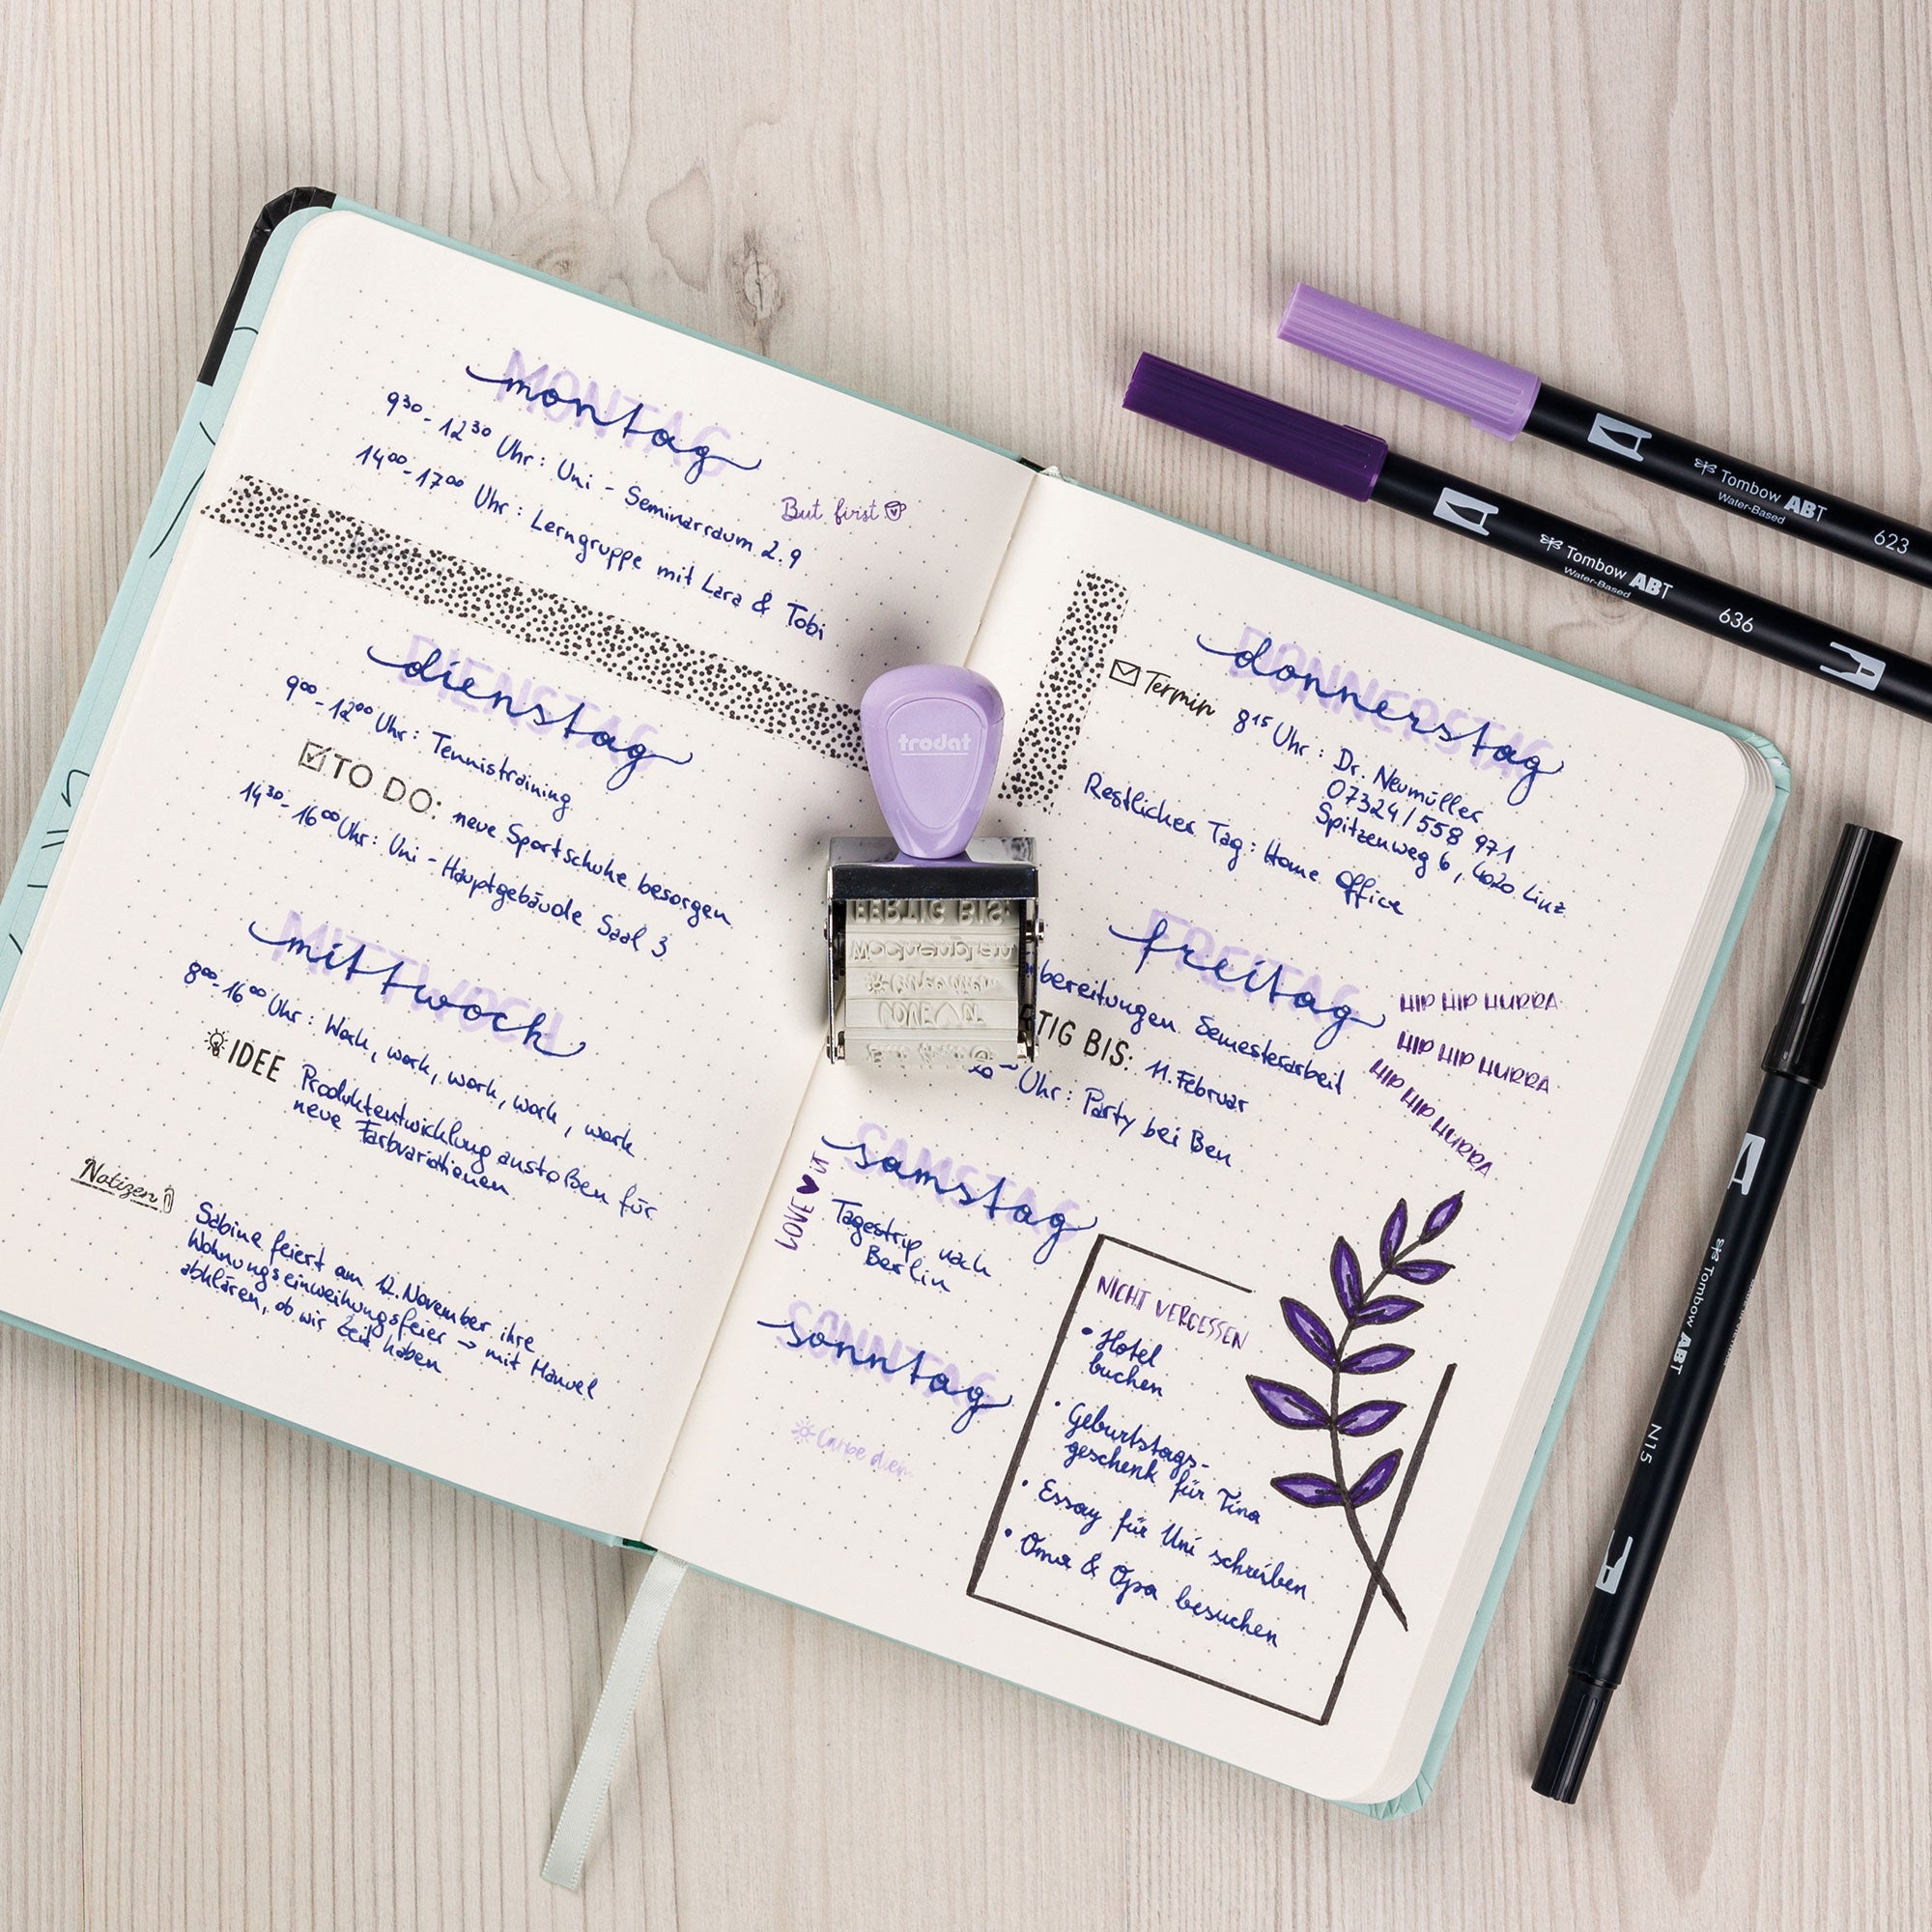 MONTAG
montag
9³⁰-12³⁰ Uhr: Uni - Seminarraum 2.9
14⁰⁰-17⁰⁰ Uhr: Lerngruppe mit Lara & Tobi
But first
DIENSTAG
dienstag
9⁰⁰-12⁰⁰ Uhr: Tennistraining
TO DO: neue Sportschuhe besorgen
14³⁰-16⁰⁰ Uhr: Uni - Hauptgebäude Saal 3
MITTWOCH
mittwoch
8⁰⁰-16⁰⁰ Uhr: Work, work, work, work, work
IDEE Produktentwicklung anstoßen für
neue Farbvariationen
Notizen
Sabine feiert am 12. November ihre
Wohnungseinweihungsfeier → mit Manuel
abklären, ob wir Zeit haben
trodat
DONNERSTAG
donnerstag
Termin 8¹⁵ Uhr: Dr. Neumüller
07324/558 971
Spitzenweg 6, 4020 Linz
Restlicher Tag: Home Office
FREITAG
freitag
bereitungen Semesterarbeit
TIG BIS: 11. Februar
Uhr: Party bei Ben
HIP HIP HURRA
HIP HIP HURRA
HIP HIP HURRA
SAMSTAG
samstag
LOVE ♥ it
Tagestrip nach
Berlin
SONNTAG
sonntag
Carpe diem
NICHT VERGESSEN
• Hotel
buchen
• Geburtstags-
geschenk für Tina
• Essay für Uni schreiben
• Oma & Opa besuchen
Tombow ABT
Water-Based
623
Tombow ABT
Water-Based
636
Tombow ABT
N15